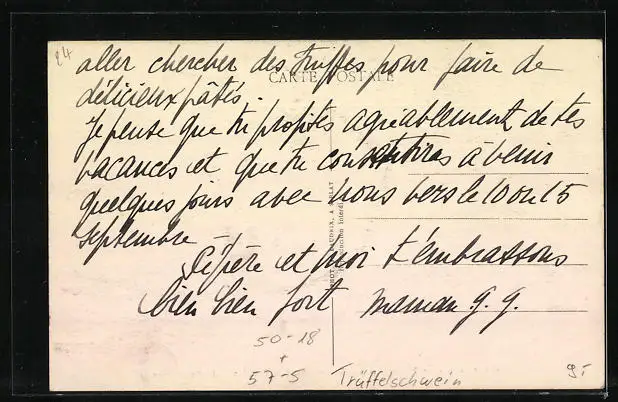 24
aller chercher des truffes pour faire de
CARTE POSTALE
délicieux pâtés.
Je pense que tu profites agréablement de tes
vacances et que tu consentiras à venir
quelques jours avec nous vers le 10 ou 15
septembre -
Pépère et moi t'embrassons
bien bien fort maman g. g.
50-18
+
57-5 Trüffelschwein
9.-